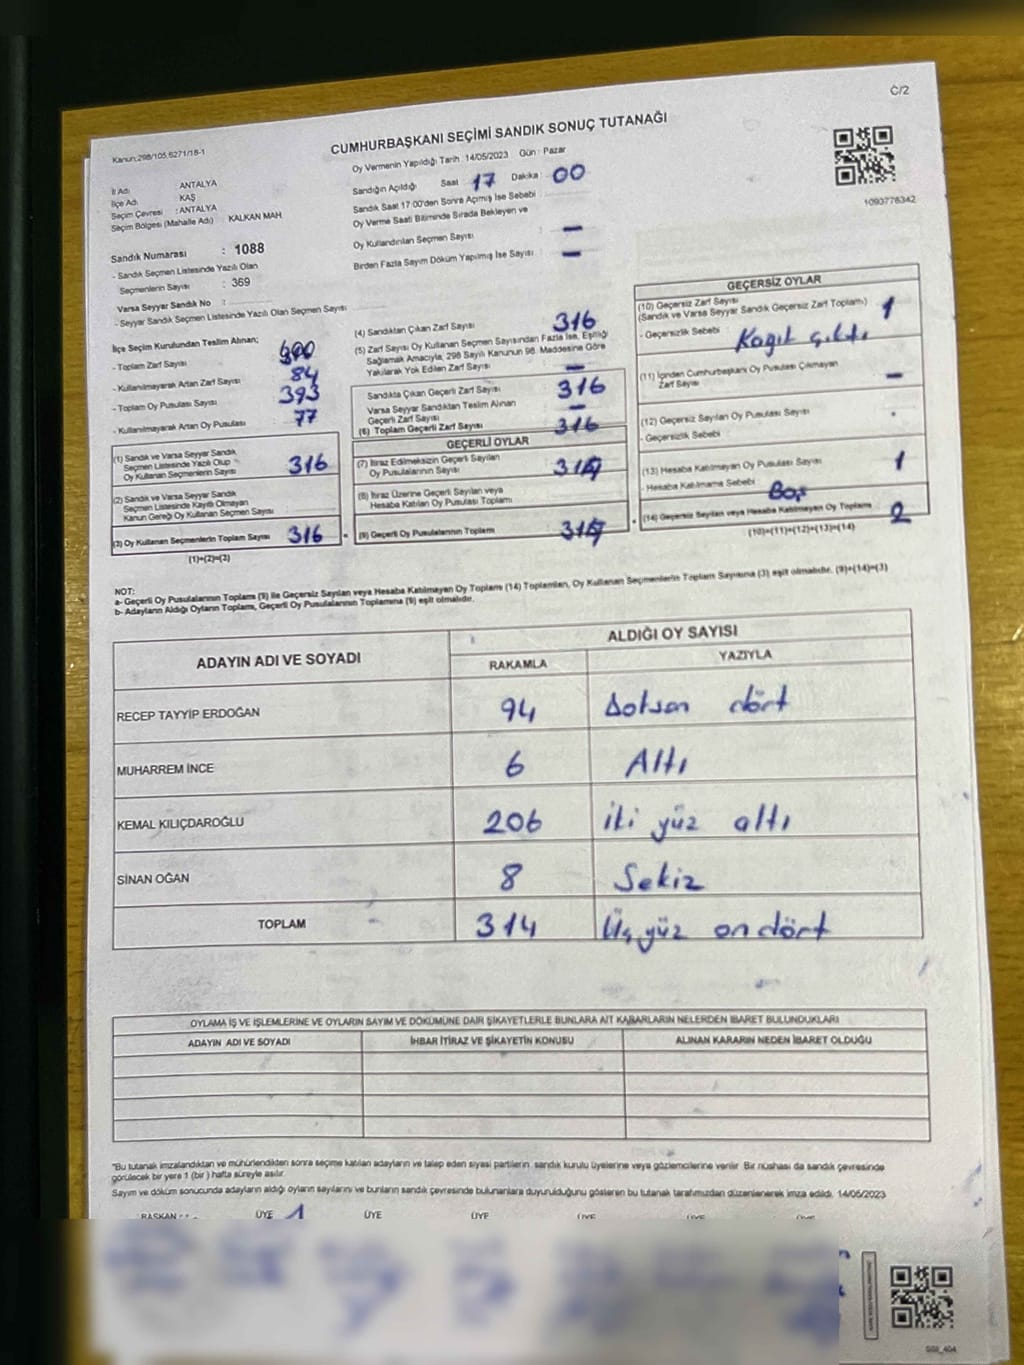 C/2
Kanun:298/105,6271/18-1
CUMHURBAŞKANI SEÇİMİ SANDIK SONUÇ TUTANAĞI
Oy Vermenin Yapıldığı Tarih : 14/05/2023 Gün : Pazar
İl Adı : ANTALYA
İlçe Adı : KAŞ
Seçim Çevresi : ANTALYA
Seçim Bölgesi (Mahalle Adı) KALKAN MAH
Sandık Numarası : 1088
- Sandık Seçmen Listesinde Yazılı Olan
Seçmenlerin Sayısı : 369
Varsa Seyyar Sandık No :
- Seyyar Sandık Seçmen Listesinde Yazılı Olan Seçmen Sayısı :
Sandığın Açıldığı Saat 17 Dakika : 00
Sandık Saat 17:00'den Sonra Açmış İse Sebebi
Oy Verme Saati Bitiminde Sırada Bekleyen ve
Oy Kullandırılan Seçmen Sayısı : –
Birden Fazla Sayım Döküm Yapılmış İse Sayısı : –
1093776342
İlçe Seçim Kurulundan Teslim Alınan;
- Toplam Zarf Sayısı
- Kullanılmayarak Artan Zarf Sayısı 84
- Toplam Oy Pusulası Sayısı 393
- Kullanılmayarak Artan Oy Pusulası 77
(1) Sandık ve Varsa Seyyar Sandık
Seçmen Listesinde Yazılı Olup
Oy Kullanan Seçmenlerin Sayısı 316
(2) Sandık ve Varsa Seyyar Sandık
Seçmen Listesinde Kayıtlı Olmayan
Kanun Gereği Oy Kullanan Seçmen Sayısı
(3) Oy Kullanan Seçmenlerin Toplam Sayısı 316
(1)+(2)=(3)
(4) Sandıktan Çıkan Zarf Sayısı 316
(5) Zarf Sayısı Oy Kullanan Seçmen Sayısından Fazla İse, Eşitliği
Sağlamak Amacıyla, 298 Sayılı Kanunun 98. Maddesine Göre
Yakılarak Yok Edilen Zarf Sayısı –
Sandıkta Çıkan Geçerli Zarf Sayısı 316
Varsa Seyyar Sandıktan Teslim Alınan
Geçerli Zarf Sayısı –
(6) Toplam Geçerli Zarf Sayısı 316
GEÇERLİ OYLAR
(7) İtiraz Edilmeksizin Geçerli Sayılan
Oy Pusulalarının Sayısı 314
(8) İtiraz Üzerine Geçerli Sayılan veya
Hesaba Katılan Oy Pusulası Toplamı
(9) Geçerli Oy Pusulalarının Toplamı 314
GEÇERSİZ OYLAR
(10) Geçersiz Zarf Sayısı
(Sandık ve Varsa Seyyar Sandık Geçersiz Zarf Toplamı) 1
- Geçersizlik Sebebi Kağıt çıktı
(11) İçinden Cumhurbaşkanı Oy Pusulası Çıkmayan
Zarf Sayısı –
(12) Geçersiz Sayılan Oy Pusulası Sayısı
- Geçersizlik Sebebi
(13) Hesaba Katılmayan Oy Pusulası Sayısı 1
- Hesaba Katılmama Sebebi Boş
(14) Geçersiz Sayılan veya Hesaba Katılmayan Oy Toplamı 2
(10)+(11)+(12)+(13)=(14)
NOT:
a- Geçerli Oy Pusulalarının Toplamı (9) ile Geçersiz Sayılan veya Hesaba Katılmayan Oy Toplamı (14) Toplamları, Oy Kullanan Seçmenlerin Toplam Sayısına (3) eşit olmalıdır. (9)+(14)=(3)
b- Adayların Aldığı Oyların Toplamı, Geçerli Oy Pusulalarının Toplamına (9) eşit olmalıdır.
ADAYIN ADI VE SOYADI ALDIĞI OY SAYISI
RAKAMLA YAZIYLA
RECEP TAYYİP ERDOĞAN 94 Doksan dört
MUHARREM İNCE 6 Altı
KEMAL KILIÇDAROĞLU 206 iki yüz altı
SİNAN OĞAN 8 Sekiz
TOPLAM 314 Üç yüz on dört
OYLAMA İŞ VE İŞLEMLERİNE VE OYLARIN SAYIM VE DÖKÜMÜNE DAİR ŞİKAYETLERLE BUNLARA AİT KARARLARIN NELERDEN İBARET BULUNDUKLARI
ADAYIN ADI VE SOYADI İHBAR İTİRAZ VE ŞİKAYETİN KONUSU ALINAN KARARIN NEDEN İBARET OLDUĞU
"Bu tutanak imzalandıktan ve mühürlendikten sonra seçime katılan adayların ve talep eden siyasi partilerin sandık kurulu üyelerine veya gözlemcilerine verilir. Bir nüshası da sandık çevresinde
görülecek bir yere 1 (bir) hafta süreyle asılır.
Sayım ve döküm sonucunda adayların aldığı oyların sayılarını ve bunların sandık çevresinde bulunanlara duyurulduğunu gösteren bu tutanak tarafımızdan düzenlenerek imza edildi. 14/05/2023
BAŞKAN ÜYE 1 ÜYE ÜYE ÜYE ÜYE ÜYE